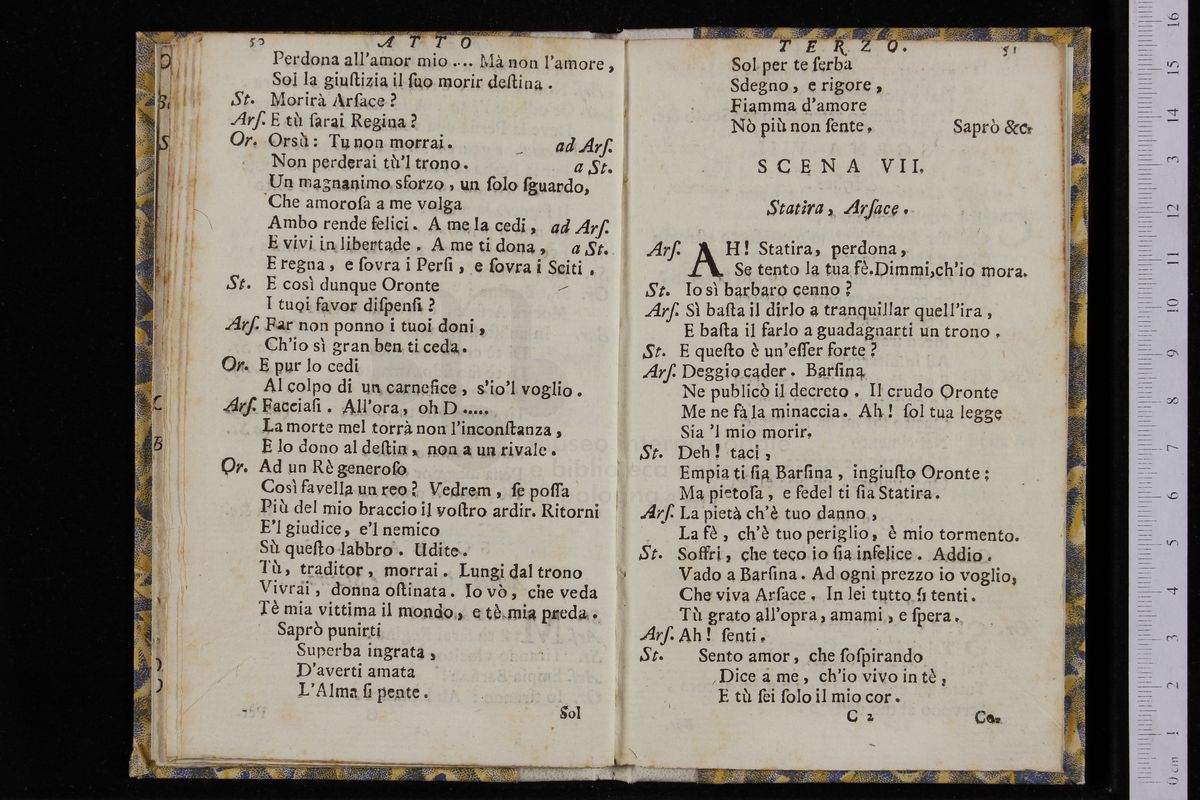 50 ATTO
Perdona all'amor mio .... Mà non l'amore,
Sol la giuſtizia il ſuo morir deſtina.
St. Morirà Arſace?
Arſ. E tù ſarai Regina?
Or. Orsù: Tu non morrai. ad Arſ.
Non perderai tù'l trono. a St.
Un magnanimo sforzo, un ſolo ſguardo,
Che amoroſa a me volga
Ambo rende felici. A me la cedi, ad Arſ.
E vivi in libertade. A me ti dona, a St.
E regna, e ſovra i Perſi, e ſovra i Sciti.
St. E così dunque Oronte
I tuoi favor diſpenſi?
Arſ. Far non ponno i tuoi doni,
Ch'io sì gran ben ti ceda.
Or. E pur lo cedi
Al colpo di un carnefice, s'io'l voglio.
Arſ. Facciaſi. All'ora, oh D.....
La morte mel torrà non l'inconſtanza,
E lo dono al deſtin, non a un rivale.
Or. Ad un Rè generoſo
Così favella un reo? Vedrem, ſe poſſa
Più del mio braccio il voſtro ardir. Ritorni
E'l giudice, e'l nemico
Sù queſto labbro. Udite.
Tù, traditor, morrai. Lungi dal trono
Vivrai, donna oſtinata. Io vò, che veda
Tè mia vittima il mondo, e tè mia preda.
Saprò punirti
Superba ingrata,
D'averti amata
L'Alma ſi pente.
Sol
TERZO. 51
Sol per te ſerba
Sdegno, e rigore,
Fiamma d'amore
Nò più non ſente. Saprò &c.
SCENA VII.
Statira, Arſace.
Arſ. AH! Statira, perdona,
Se tento la tua fè. Dimmi, ch'io mora.
St. Io sì barbaro cenno?
Arſ. Sì baſta il dirlo a tranquillar quell'ira,
E baſta il farlo a guadagnarti un trono.
St. E queſto è un'eſſer forte?
Arſ. Deggio cader. Barſina
Ne publicò il decreto. Il crudo Oronte
Me ne fà la minaccia. Ah! ſol tua legge
Sia 'l mio morir.
St. Deh! taci,
Empia ti ſia Barſina, ingiuſto Oronte;
Ma pietoſa, e fedel ti ſia Statira.
Arſ. La pietà ch'è tuo danno,
La fè, ch'è tuo periglio, è mio tormento.
St. Soffri, che teco io ſia infelice. Addio.
Vado a Barſina. Ad ogni prezzo io voglio,
Che viva Arſace. In lei tutto ſi tenti.
Tù grato all'opra, amami, e ſpera.
Arſ. Ah! ſenti.
St. Sento amor, che ſoſpirando
Dice a me, ch'io vivo in tè,
E tù ſei ſolo il mio cor.
C 2 Co-